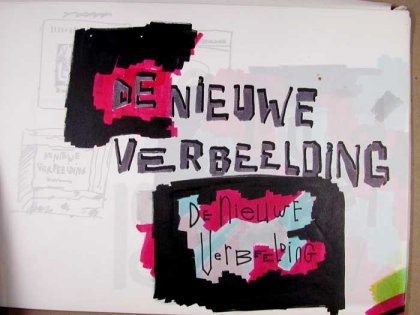 DE NIEUWE
VERBEELDING
DE NIEUWE
VERBEELDING
De Nieuwe
VerBeelDing